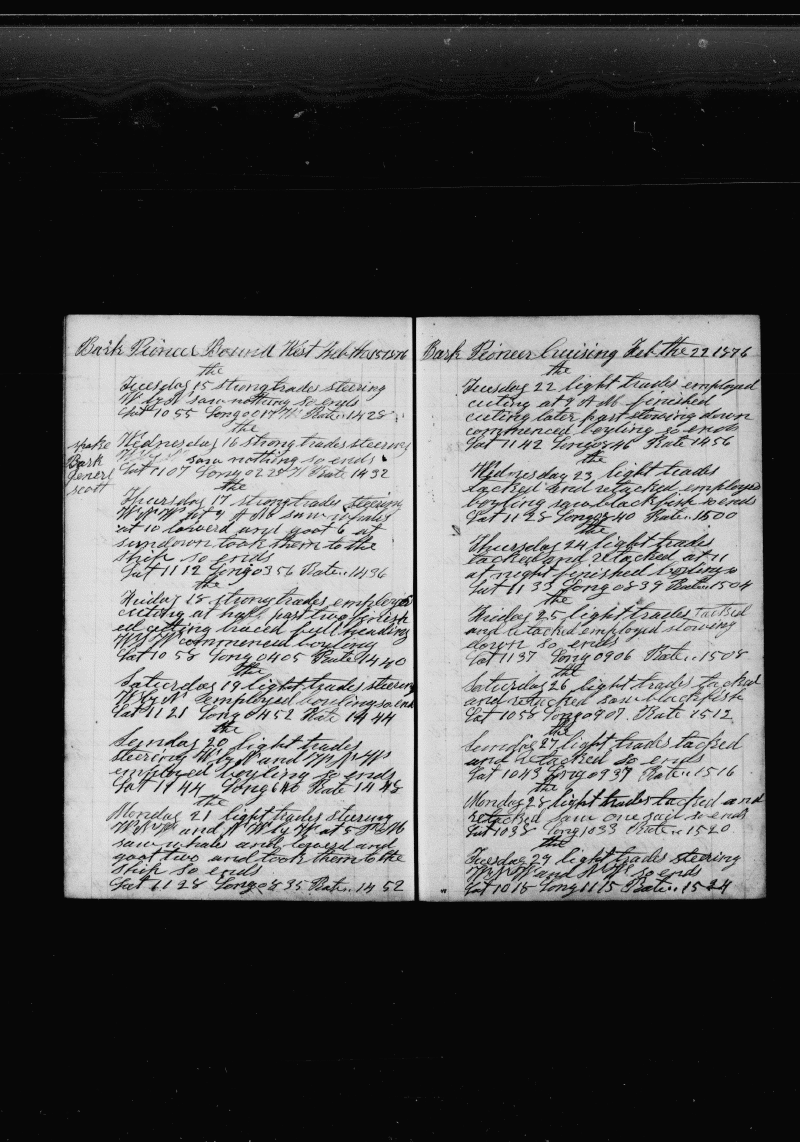 Bark Pioneer Bound West Feb the 15 1876
the
Tuesday 15 strong trades steering
W by N saw nothing so ends
Lat 10 55 Long 0017 W Rate 1428
the
spoke
Bark
Generl
scott
Wednesday 16 strong trades steering
saw nothing so ends
Lat 11 07 Long 02 29 W Rate 1432
the
Thursday 17 strong trades steering
at 9 A M saw whales
at 10 lowerd and goot 6 at
sundown took them to the
ship so ends
Lat 11 12 Long 0356 Rate 1436
the
Friday 18 strong trades employed
cuting at half past two finish
ed cutting braced full heading
commenced boyling
Lat 10 58 Long 0405 Rate 1440
the
Saturday 19 light trades steering
W by N employed boyling so ends
Lat 11 21 Long 0452 Rate 1444
the
Sunday 20 light trades
steering W by N and W N W
employed boyling so ends
Lat 1144 Long 646 Rate 1448
the
Monday 21 light trades steering
and W by at 5 P M
saw whales and lowerd and
goot two and took them to the
ship so ends
Lat 11 28 Long 0835 Rate 1452
Bark Pioneer Cruising Feb the 22 1876
the
Tuesday 22 light trades employed
cuting at 9 A M finished
cuting later part stowing down
commenced boyling so ends
Lat 11 42 Long 0846 Rate 1456
the
Wednesday 23 light trades
tacked and retacked employed
boyling saw black fish so ends
Lat 11 28 Long 0840 Rate 1500
the
Thursday 24 light trades
tacked and retacked at 11
at night finished boyling
Lat 11 33 Long 0839 Rate 1504
the
Friday 25 light trades tacked
and retacked employed stowing
down so ends
Lat 1137 Long 0906 Rate 1508
the
Saturday 26 light trades tacked
and retacked saw blackfish
Lat 1058 Long 0907 Rate 1512
the
Sunday 27 light trades tacked
and retacked so ends
Lat 1043 Long 0937 Rate 1516
the
Monday 28 light trades tacked and
retacked saw one sail so ends
Lat 1038 Long 1033 Rate 1520
the
Tuesday 29 light trades steering
and so ends
Lat 1018 Long 1115 Rate 1524